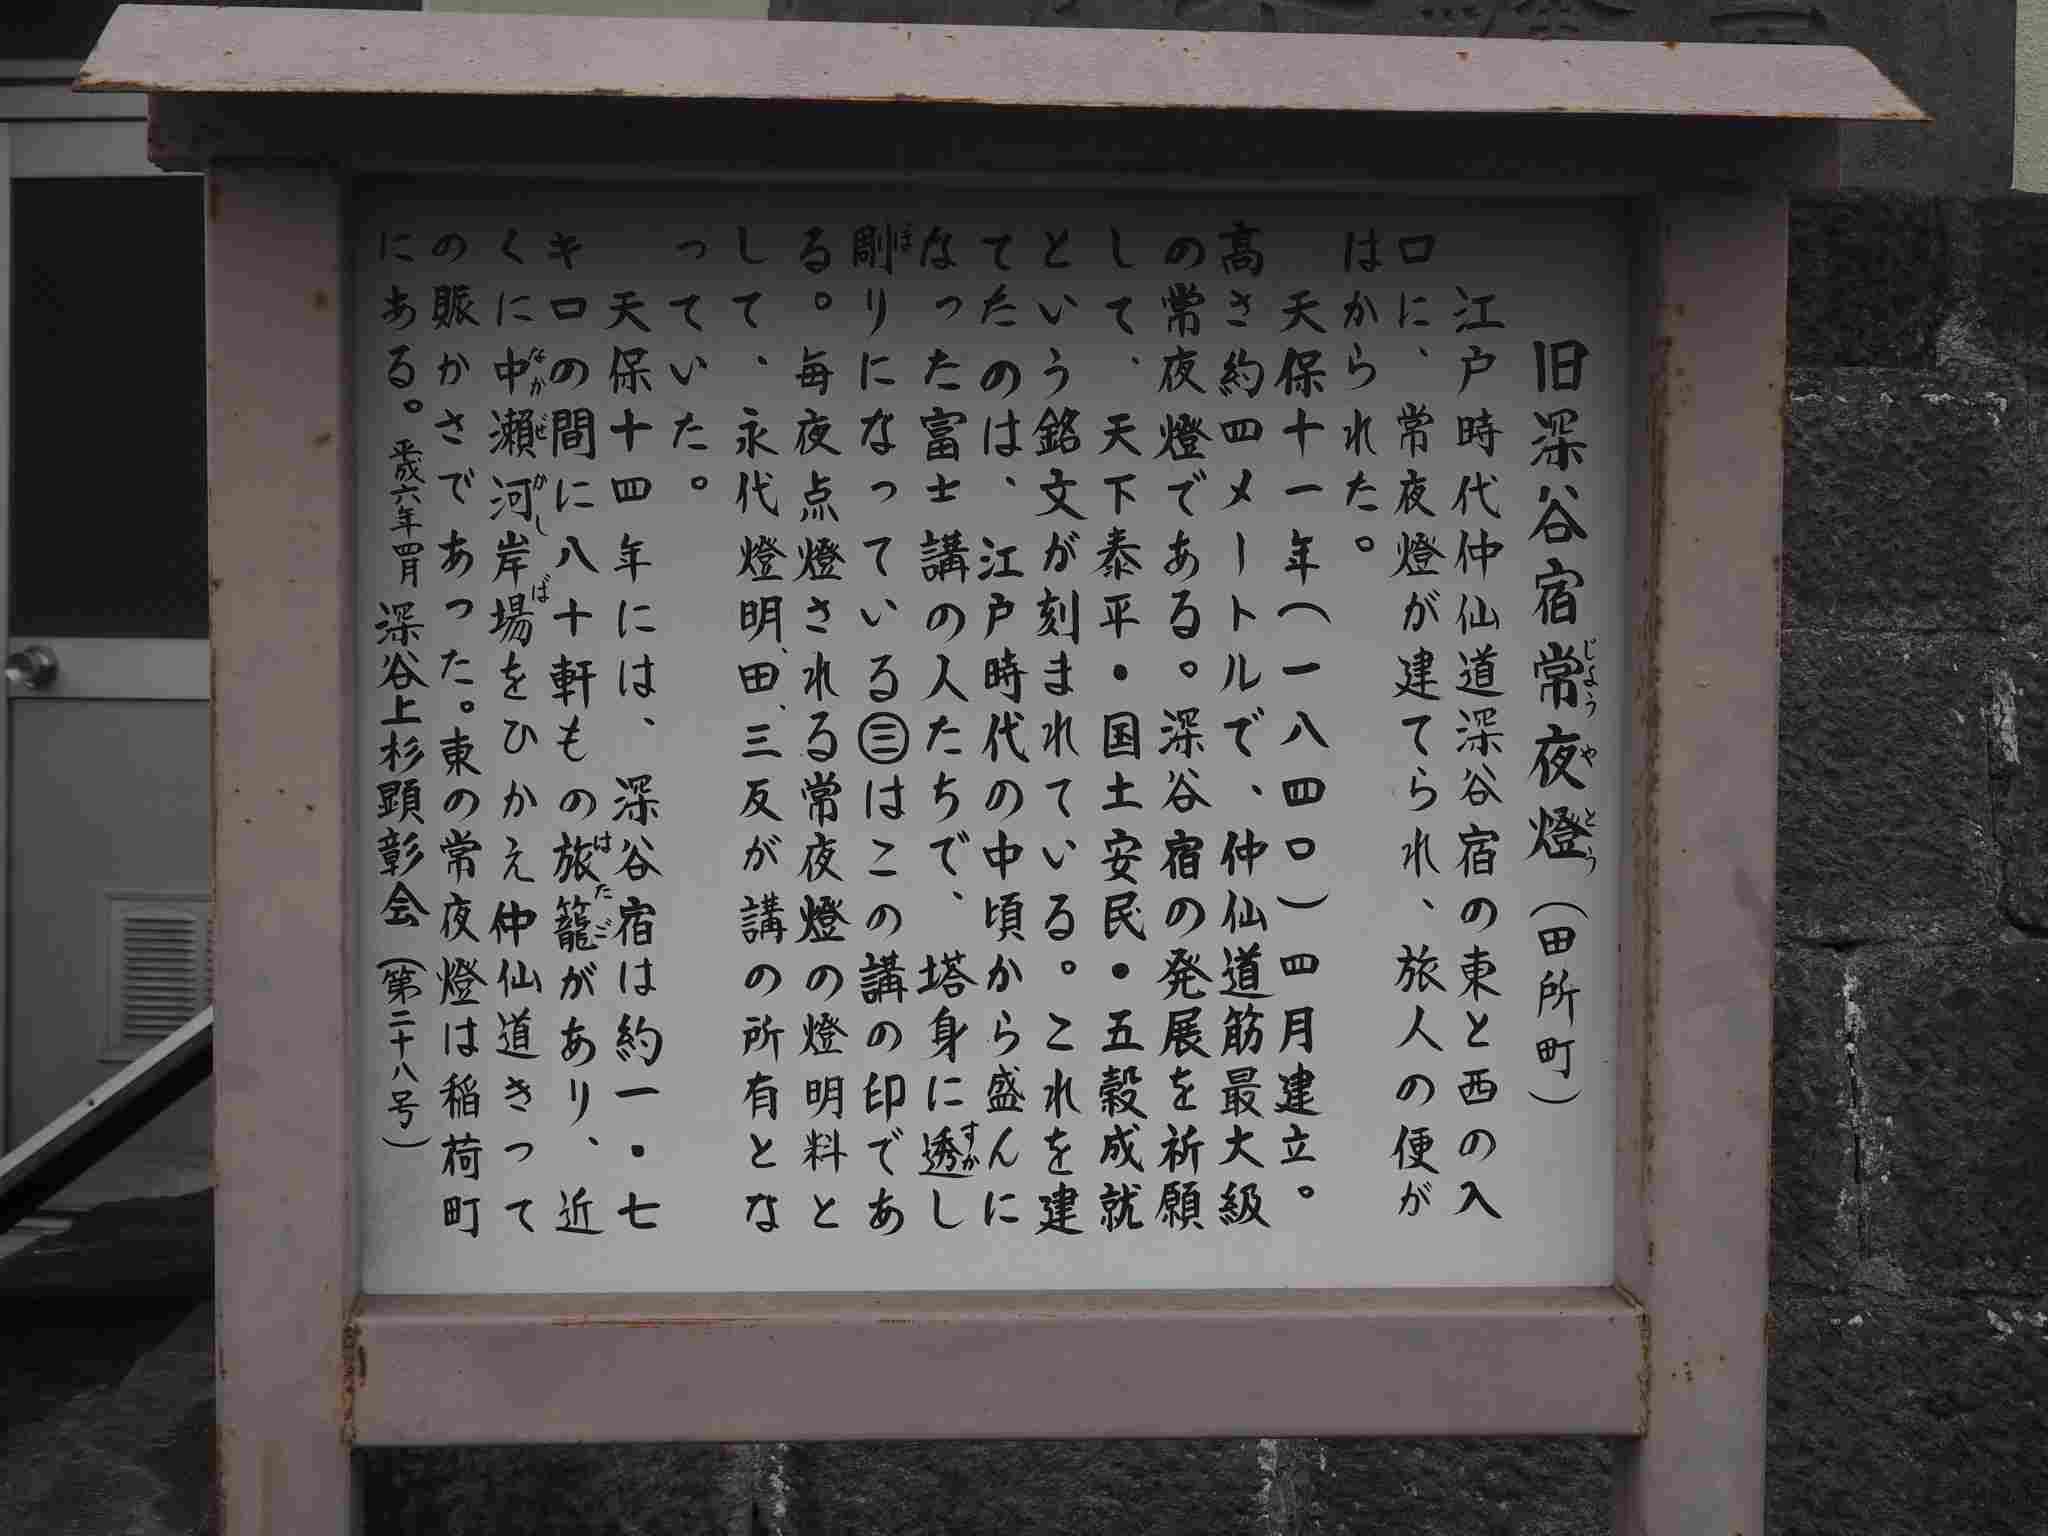 旧深谷宿常夜燈（田所町）
江戸時代仲仙道深谷宿の東と西の入
口に、常夜燈が建てられ、旅人の便が
はかられた。
天保十一年（一八四〇）四月建立。
高さ約四メートルで、仲仙道筋最大級
の常夜燈である。深谷宿の発展を祈願
して、天下泰平・国土安民・五穀成就
という銘文が刻まれている。これを建
てたのは、江戸時代の中頃から盛んに
なった富士講の人たちで、塔身に透し
彫りになっている㊂はこの講の印であ
る。毎夜点燈される常夜燈の燈明料と
して、永代燈明、田、三反が講の所有とな
っていた。
天保十四年には、深谷宿は約一・七
キロの間に八十軒もの旅籠があり、近
くに中瀬河岸場をひかえ仲仙道きって
の賑かさであった。東の常夜燈は稲荷町
にある。平成六年四月 深谷上杉顕彰会（第二十八号）